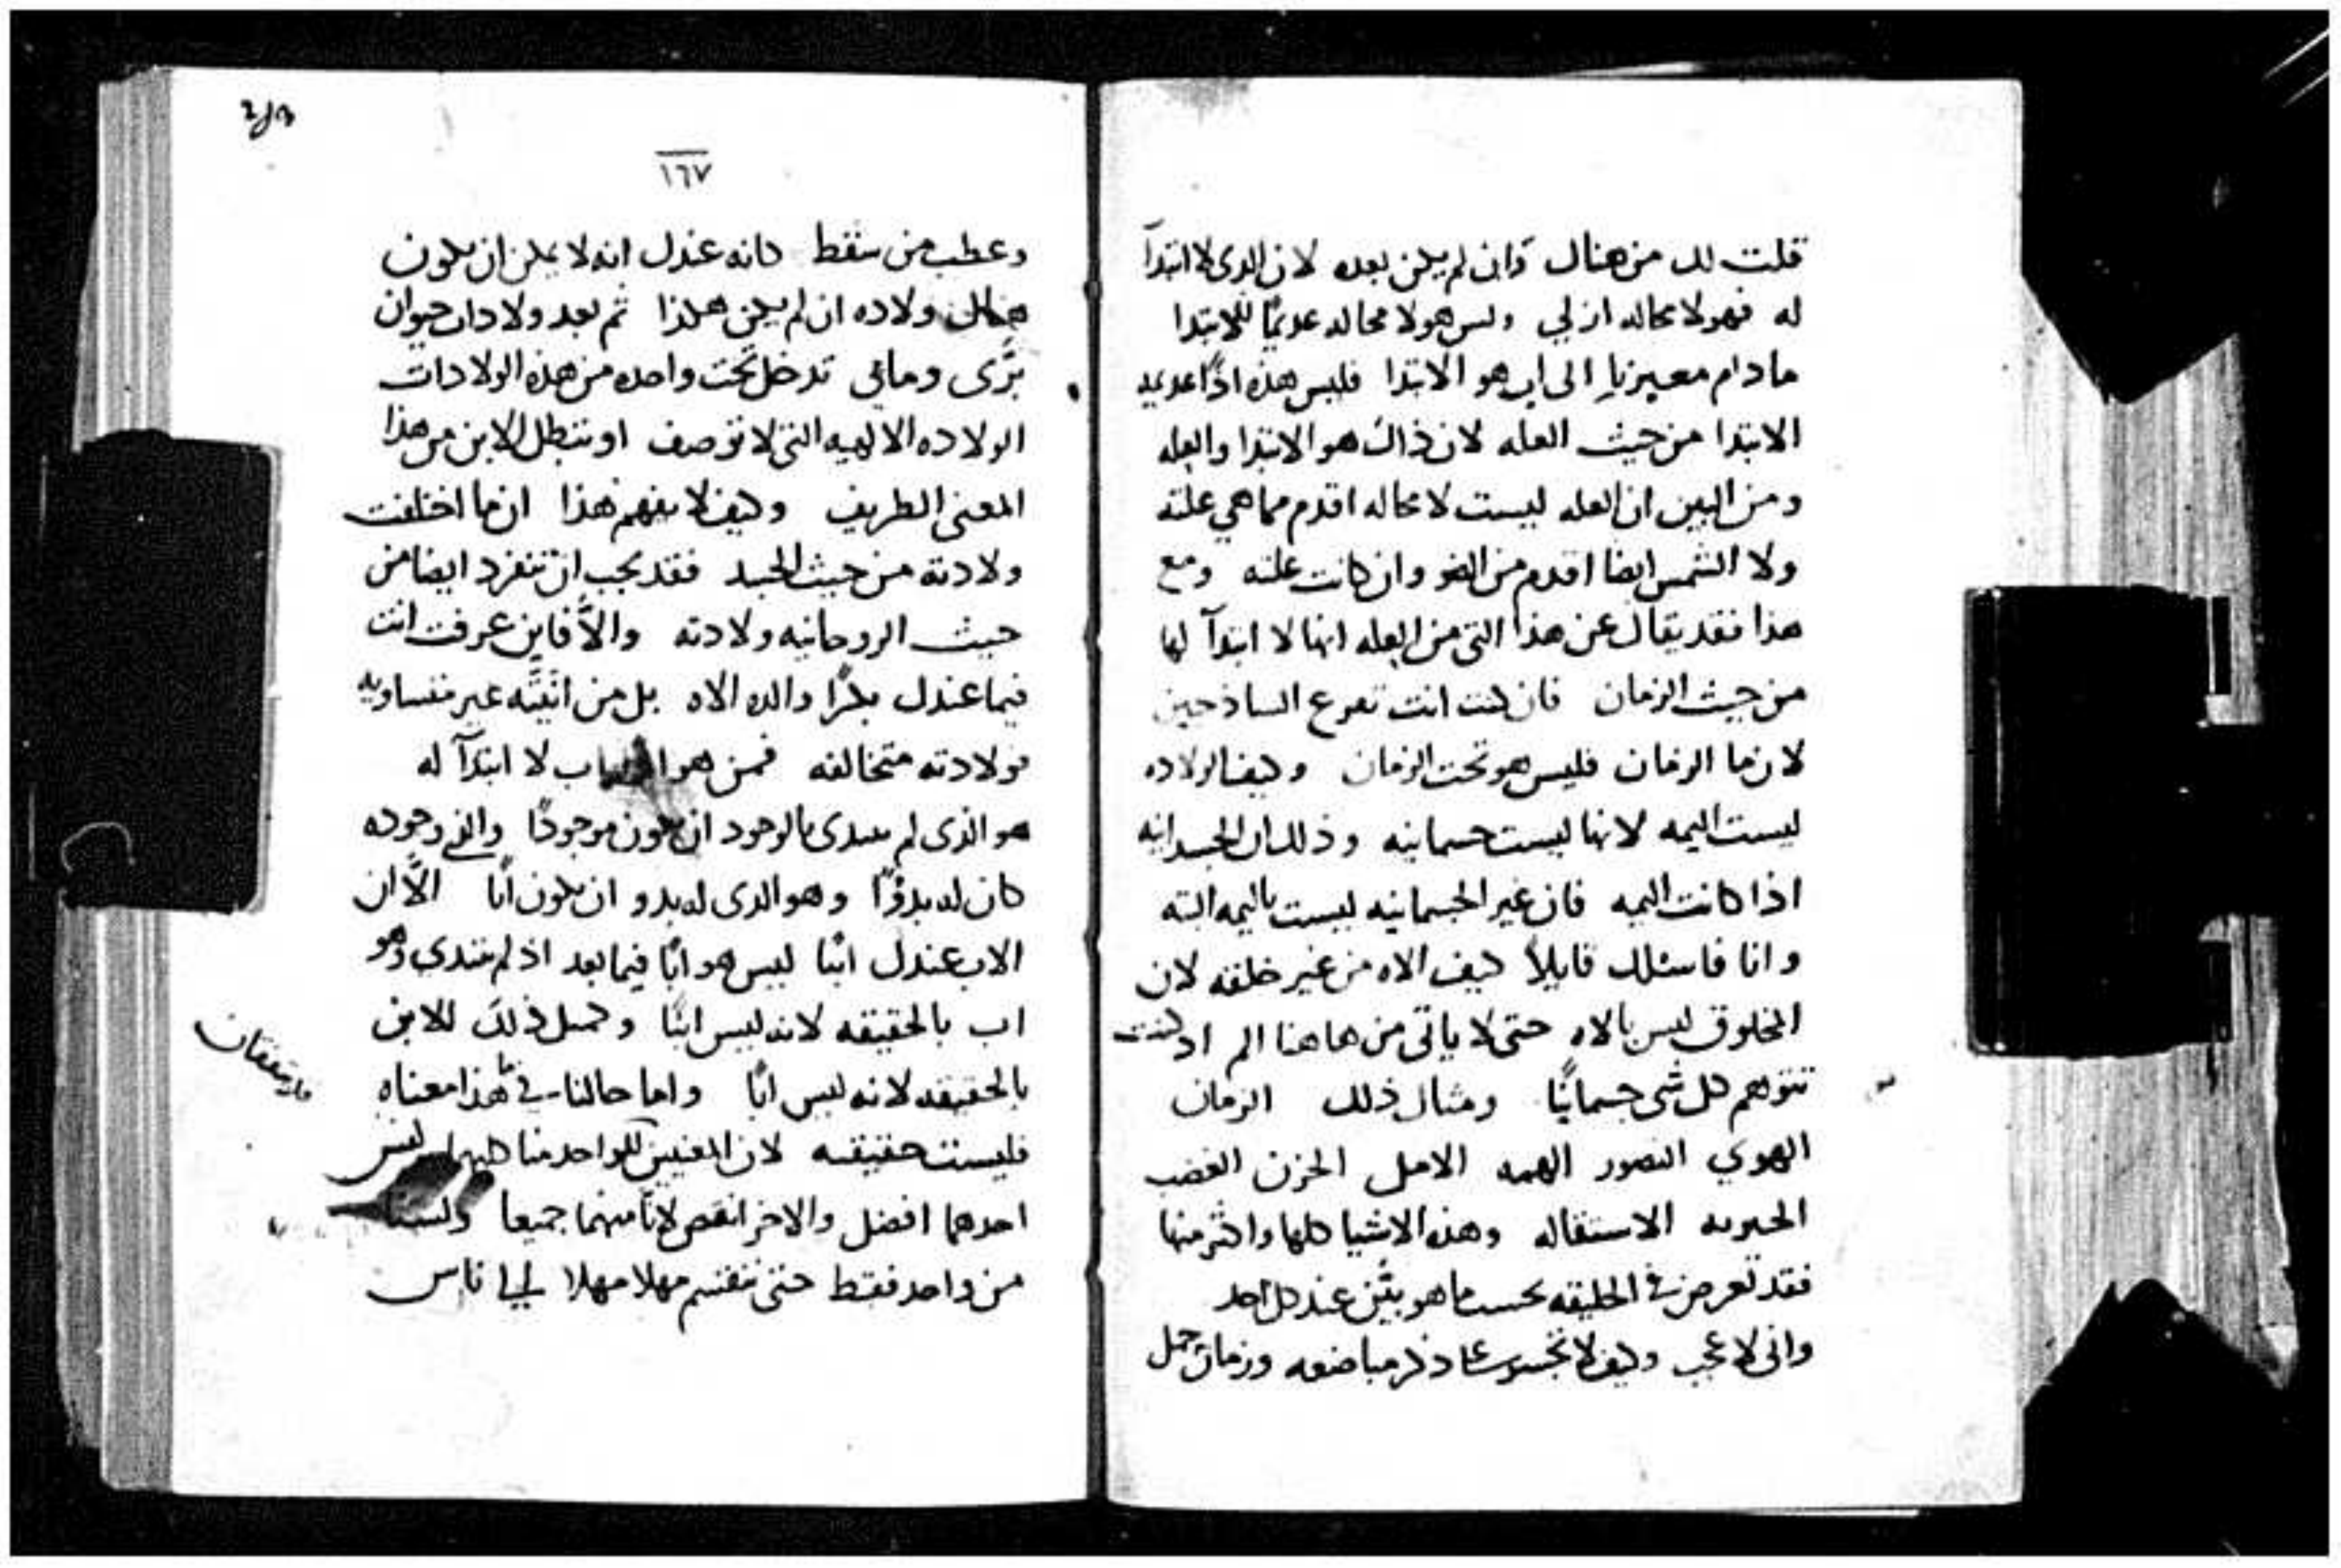 قلت لك من هناك وان لم يكن بعده لان الدى لا ابتدآ
له فهو لا محاله ازلي وليس هو لا محاله عديمًا للابتدا
ما دام معيرنا الى اب هو الابتدا فليس هذه اذًا عديمه
الابتدا من حيث العله لان ذاك هو الابتدا والعله
ومن البين ان العله ليست لا محاله اقدم مما هي علته
ولا الشمس ايضا اقدم من الضو وان كانت علته ومع
هذا فقد يقال عن هذا التى من العله انها لا ابتدآ لها
من حيث الزمان فان كنت انت تفزع الساذحين
لان ما الزمان فليس هو تحت الزمان وكيف الولاده
ليست اليمه لانها ليست حسمانيه وذلك ان الجسدانيه
اذا كانت اليمه فان غير الجسمانيه ليست باليمه البته
وانا فاسئلك قايلاً كيف الاه من غير خلقه لان
المخلوق ليس بالاه حتى لا ياتى من هاهنا الم اد كنت
تتوهم كل شى جسمانيًا ومثال ذلك الزمان
الهوي التصور الهمه الامل الحزن الغضب
الحيريه الاستقاله وهذه الاشيا كلها واكثر منها
فقد تعرض في الخليقه بحسب ما هو بيّن عند كل احد
وانى لا عجب وكيف لا تجسر على ذكر مباضعه وزمان حمل
٢١٣
١٦٧
وعطب من سقط كانه عندك انه لا يمكن ان يكون
هنالك ولاده ان لم يكن هكذا ثم بعد ولادات حيوان
برّى ومائى تدخل تحت واحده من هذه الولادات
الولاده الالهيه التى لا توصف او تبطل الابن من هذا
المعنى الطريف وكيف لا يفهم هذا ان ما اختلفت
ولادته من حيث الجسد فقد يجب ان تنفرد ايضا من
حيث الروحانيه ولادته والاّ فاين عرفت انت
فيما عندك بكرًا والده الاه بل من انّيّته غير متساويه
فولادته متخالفه فمن هو اب لا ابتدآ له
هو الذى لم يبتدى بالوجود ان يكون موجودًا والذى وجوده
كان له بدوًا وهو الدى له بدو ان يكون ابًا الاّ ان
الاب عندك ابنًا ليس هو ابًا فيما بعد اذ لم يبتدى وهو
اب بالحقيقه لانه ليس ابنًا وكمثل ذلك للابن
بالحقيقه لانه ليس ابًا واما حالنا في هذا معناه
فليست حقيقه لان المعنيين للواحد منا كليهما ليس
احدهما افضل والاخر انقص لانّا منهما جميعا ولسنا
من واحد فقط حتى ننقسم مهلا مهلا لي ناس